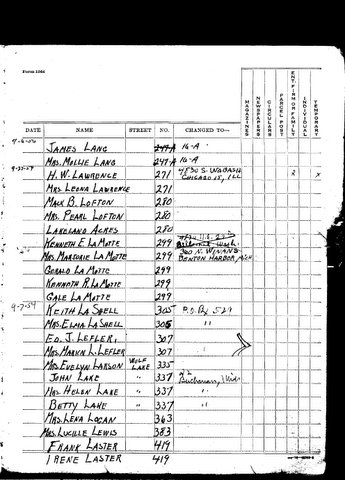 Form 1564
MAGAZINES NEWSPAPERS CIRCULARS PARCEL POST ENT. FIRM OR FAMILY INDIVIDUAL TEMPORARY
DATE NAME STREET NO. CHANGED TO—
JAMES LANG 247-A 16-A
MRS. MOLLIE LANG 247-A 16-A
H. W. LAWRENCE 271 4830 S. WABASH X
CHICAGO 15, ILL
MRS LEONA LAWRENCE 271
MAX B. LOFTON 280
MRS. PEARL LOFTON 280
LAKELAND ACRES 280
KENNETH E LA MOTTE 299 360 N. WINANS
MRS. MARJORIE LA MOTTE 299 BENTON HARBOR, MICH
GERALD LA MOTTE 299
KENNETH R. LA MOTTE 299
GALE LA MOTTE 299
9-7-54 KEITH LA SHELL 305 P.O. Bx 529
MRS. ELMA LA SHELL 305 "
ED. J. LEFLER, 307
MRS. MARVIN L. LEFLER 307
MRS EVELYN LARSON WOLF LAKE 335
JOHN LANE " 337 Buchanan, Mich
MRS HELEN LANE " 337 "
BETTY LANE " 337 "
MRS. LENA LOGAN 363
MRS. LUCILLE LEWIS 383
FRANK LASTER 419
IRENE LASTER 419